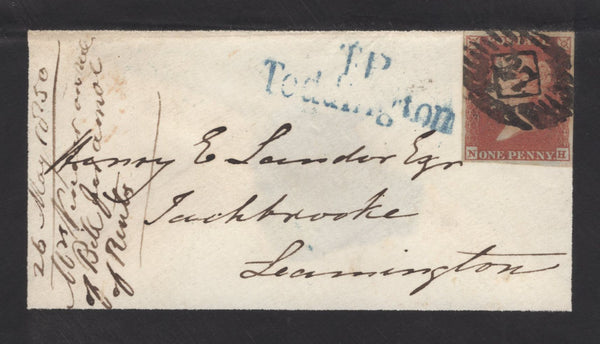 T.P
Teddington
N ONE PENNY H
Henry E Landor Esqr
Tachbrooke
Leamington
26 May 1850
of Bill for amot
of Rents